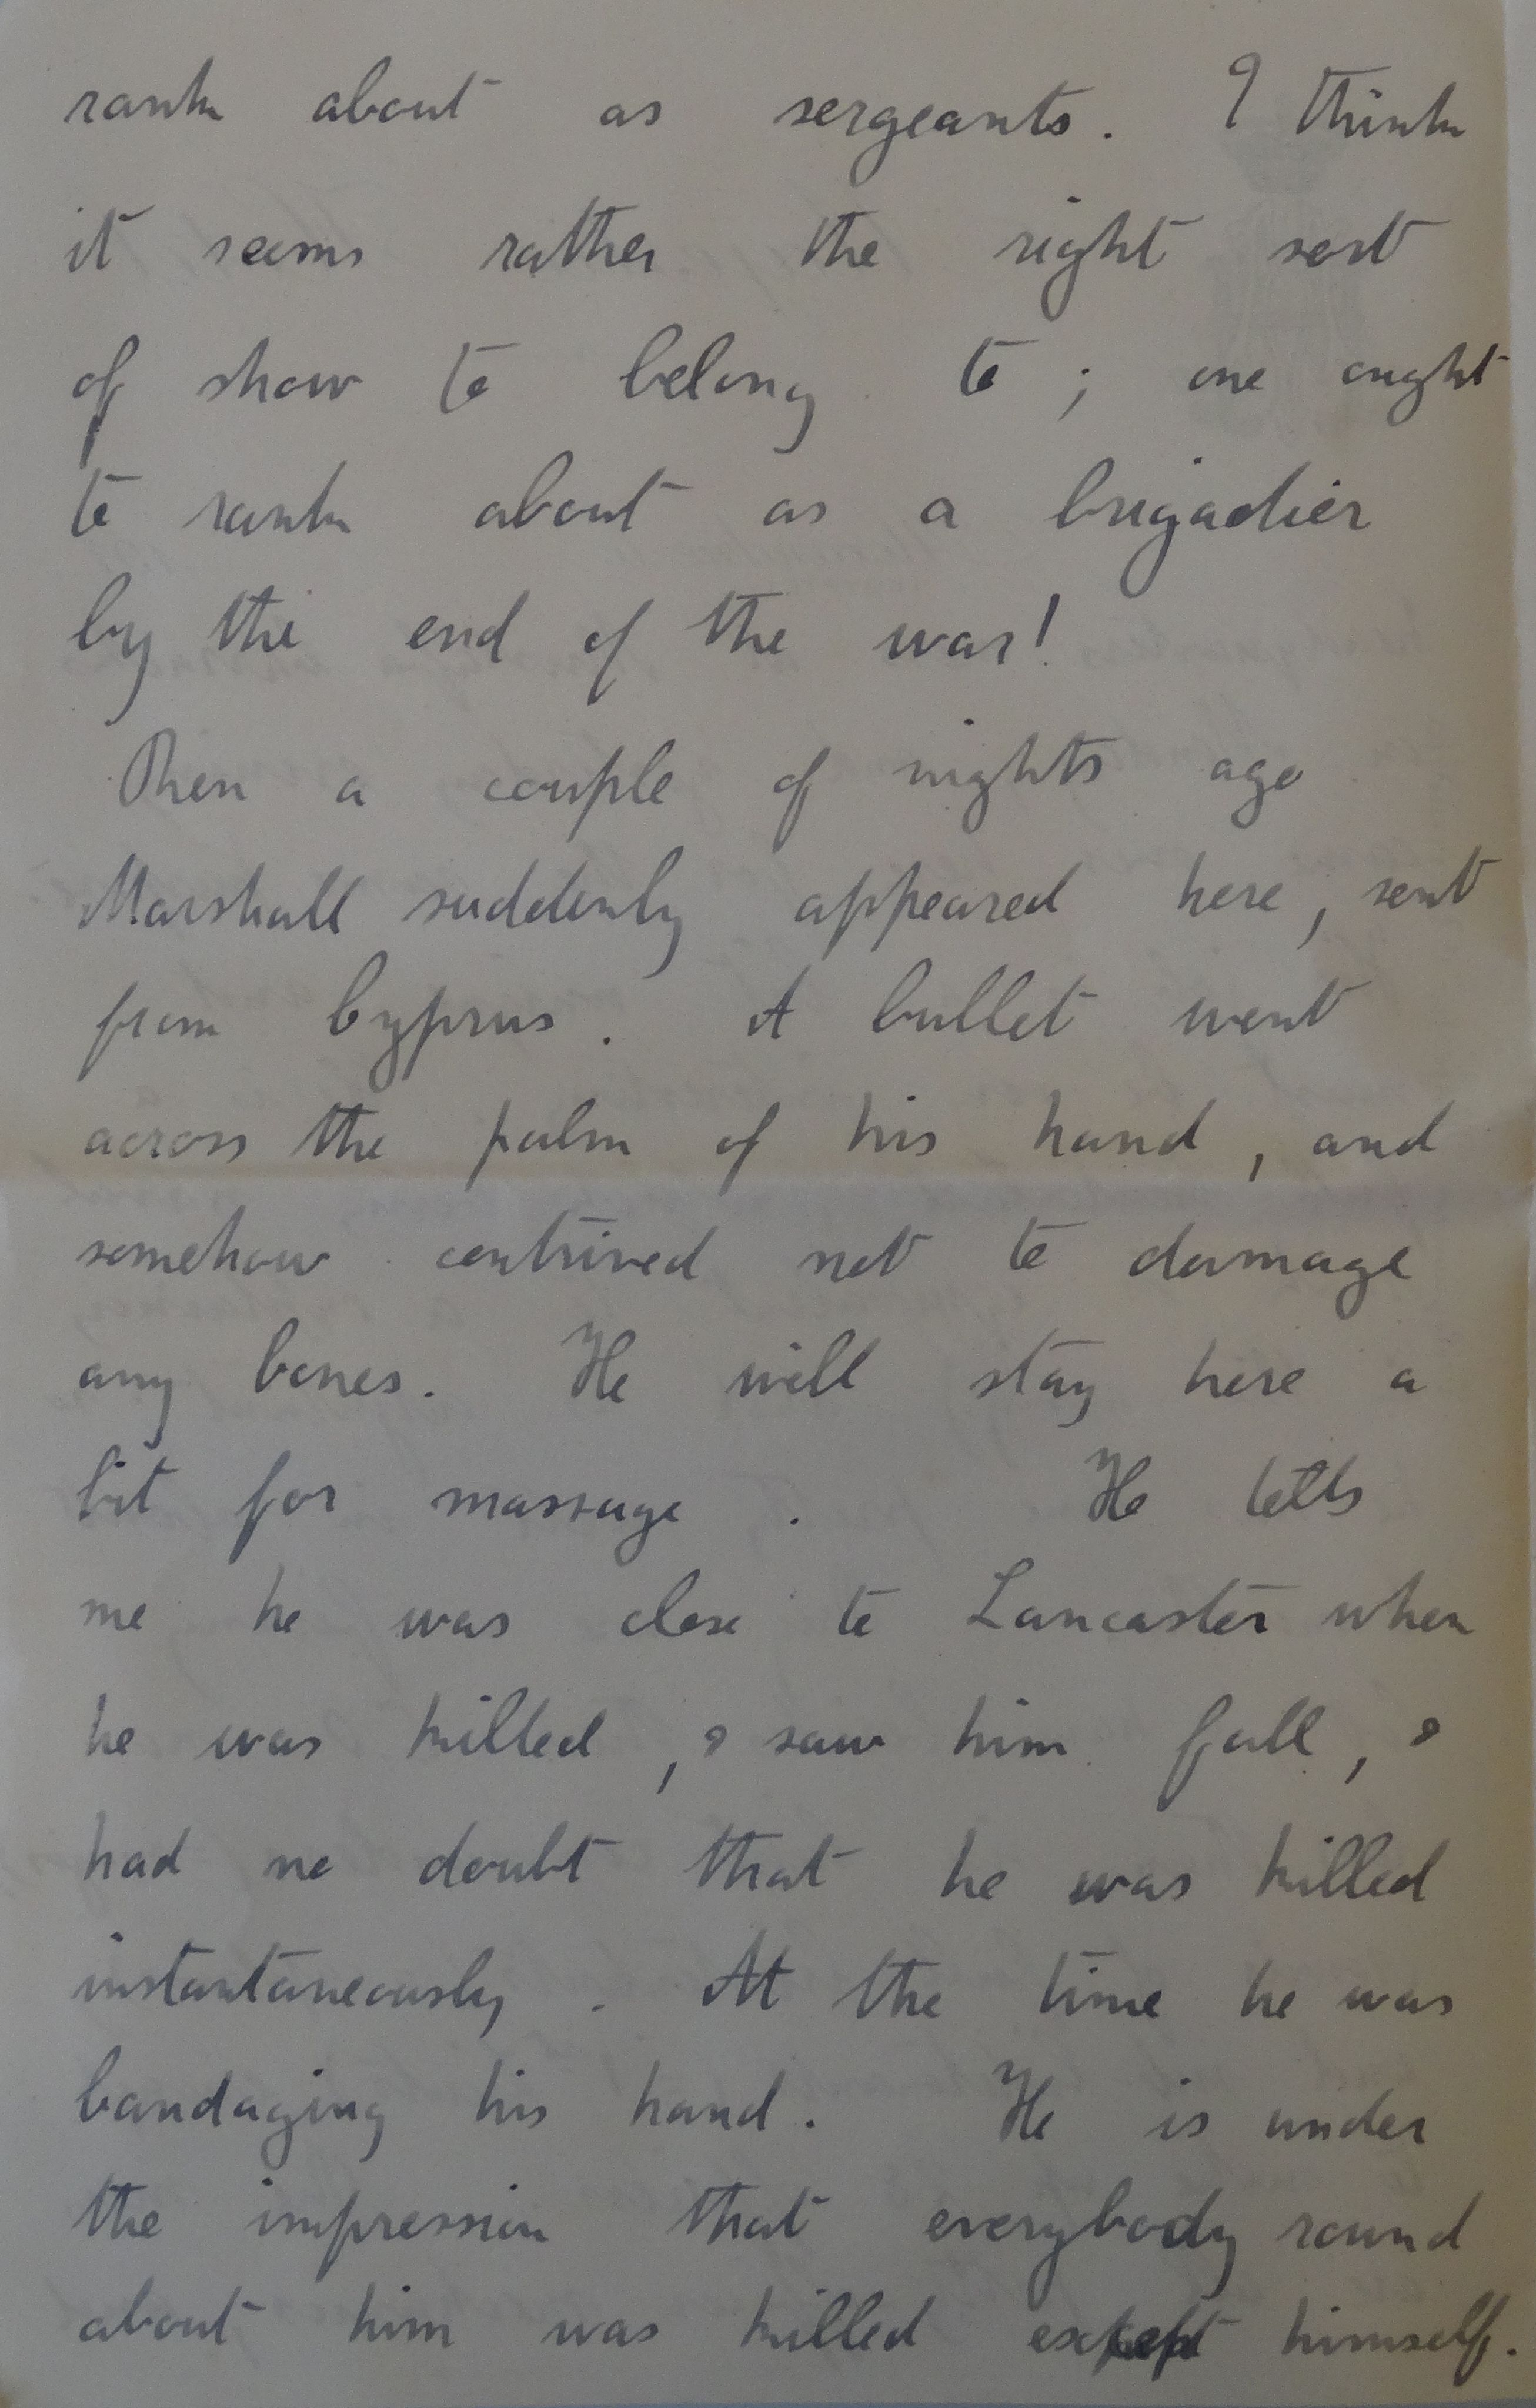 rank about as sergeants. I think
it seems rather the right sort
of show to belong to ; one ought
to rank about as a brigadier
by the end of the war!
Then a couple of nights ago
Marshall suddenly appeared here, sent
from Cyprus. A bullet went
across the palm of his hand, and
somehow contrived not to damage
any bones. He will stay here a
bit for massage . He tells
me he was close to Lancaster when
he was killed, & saw him fall, &
had no doubt that he was killed
instantaneously . At the time he was
bandaging his hand. He is under
the impression that everybody round
about him was killed except himself.